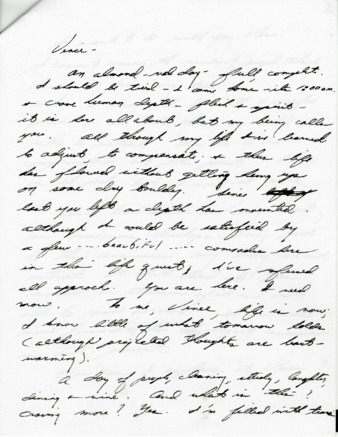 Vince -
An almond - red day - full, complet.
I should be tired - I came home its 1:00 a.m.
& crave human depth - flesh & spirit -
it is here all about, but my being calls
you. All through my life I've learned
to adjust, to compensate; & this life
has flowed without getting hung up
on some day boulder. Since
last you left a depth has mounted.
Although I would be satisfied by
a few ---- beautiful ---- comrades here
in this life quest, I've refused
all approach. You are here. I need
more. To me, Vince, life is now;
I know little of what tomorrow holds
(although projected thoughts are heart-
warming).
A day of people, cleaning, study, laughter,
dining & wine. And what is this?
Craving more? Yes. I'm filled with